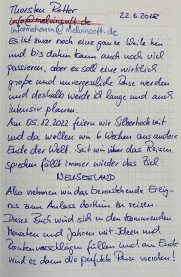 Thorsten Rotter 22.6.2018
info@melvinsoft.de
informationen@melvinsoft.de
Es ist zwar noch eine ganze Weile hin
und bis dahin kann auch noch viel
passieren, aber es soll eine wirklich
große und unvergessliche Reise werden
und deshalb werde ich lange und auch
intensiv planen
Am 05.12.2022 feiern wir Silberhochzeit
und da wollen wir 6 Wochen ans andere
Ende der Welt. Seit wir über das Reisen
sprechen fällt immer wieder das Ziel
NEUSEELAND
Also nehmen wir das bevorstehende Ereig-
nis zum Anlass dorthin zu reisen.
Dieses Buch wird sich in den kommenden
Monaten und Jahren mit Ideen und
Routenvorschlägen füllen und am Ende
wird es dann die perfekte Reise werden!